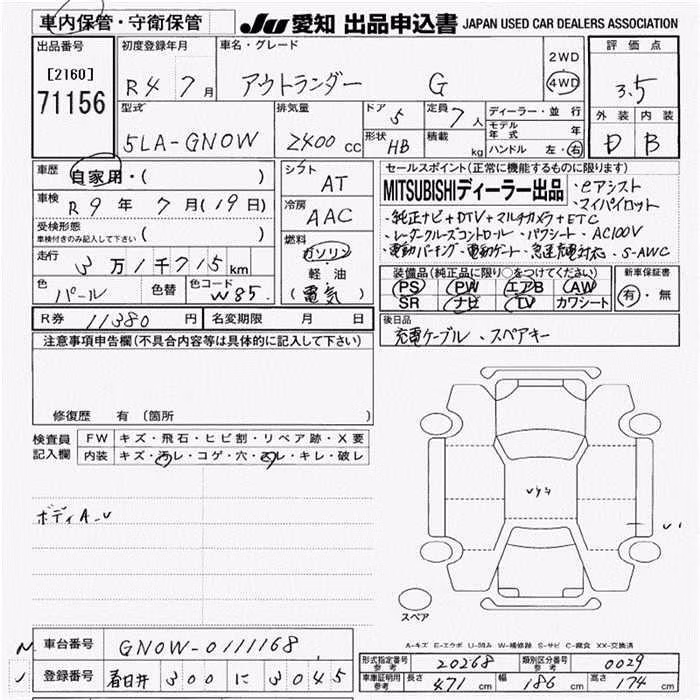 車内保管・守衛保管 JU 愛知 出品申込書 JAPAN USED CAR DEALERS ASSOCIATION
出品番号 初度登録年月 車名・グレード 2WD 評価点
[2160] R4 7月 アウトランダー G 4WD 3.5
71156 型式 排気量 ドア 5 定員 7人 ディーラー・並行 外装 内装
モデル年式 年
5LA-GN0W 2400cc 形状 HB 積載 kg ハンドル 左・右 D B
車歴 自家用・( ) シフト AT セールスポイント(正常に機能するものに限ります)
車検 R9年7月(19日) 冷房 AAC MITSUBISHIディーラー出品 ・eアシスト
・マイパイロット
受検形態 ・純正ナビ+DTV+マルチカメラ+ETC
車検付きのみ記入して下さい ( ) 燃料 ・レーダクルーズコントロール・パワシート・AC100V
走行 3万1千715km ガソリン ・電動パーキング・電動ゲート・急速充電対応・S-AWC
軽油
色 パール 色替 色コード W85. (電気) 装備品(純正品に限り○をつけてください) 新車保証書
PS PW エアB AW 有・無
SR ナビ TV カワシート
R券 11380円 名変期限 月 日 後日品
注意事項申告欄(不具合内容等は具体的に記入して下さい) 充電ケーブル、スペアキー
修復歴 有 (箇所 )
検査員記入欄 FW キズ・飛石・ヒビ割・リペア跡・X要
内装 キズ・汚レ・コゲ・穴・スレ・キレ・破レ
ボディA-U
スペア
A-キズ E-エクボ U-凹み W-補修跡 S-サビ C-腐食 XX-交換済
車台番号 GN0W-0111168
型式指定番号 参考 20268 類別区分番号 参考 0029
登録番号 春日井 300 に 3045 車庫証明用 参考 長さ 471cm 幅 186cm 高さ 174cm